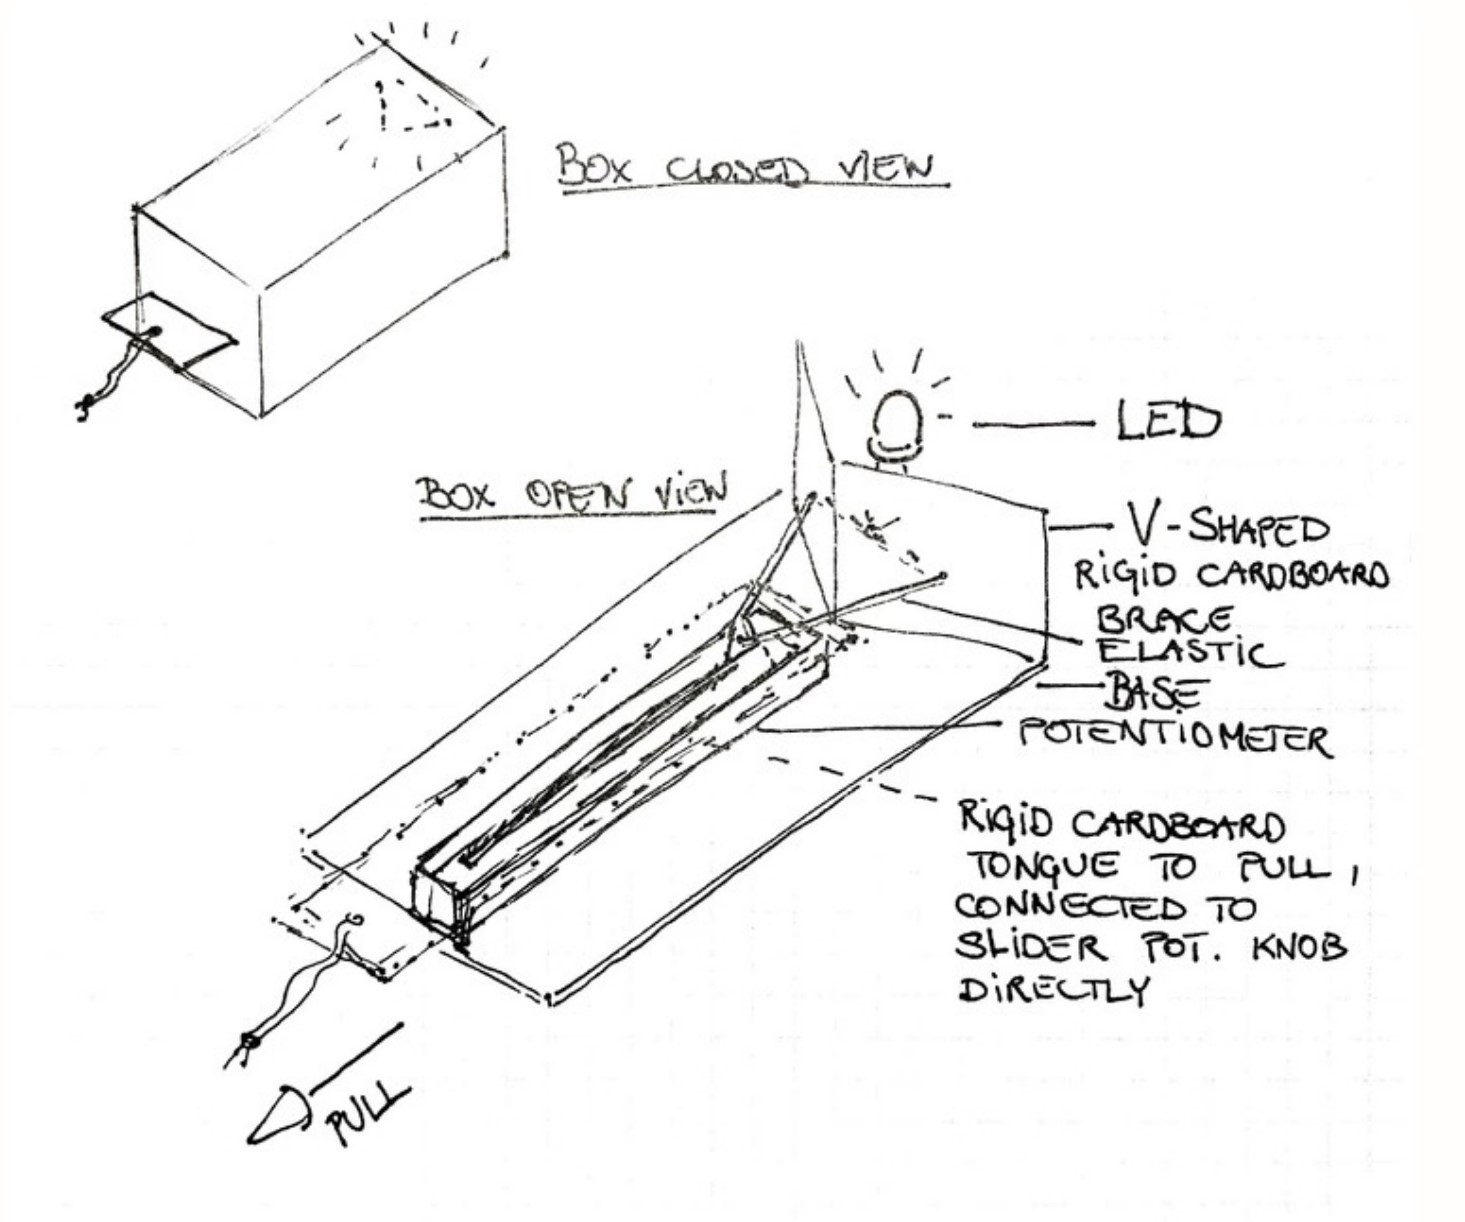 BOX CLOSED VIEW
LED
BOX OPEN VIEW
V-SHAPED
RIGID CARDBOARD
BRACE
ELASTIC
BASE
POTENTIOMETER
RIGID CARDBOARD
TONGUE TO PULL,
CONNECTED TO
SLIDER POT. KNOB
DIRECTLY
PULL